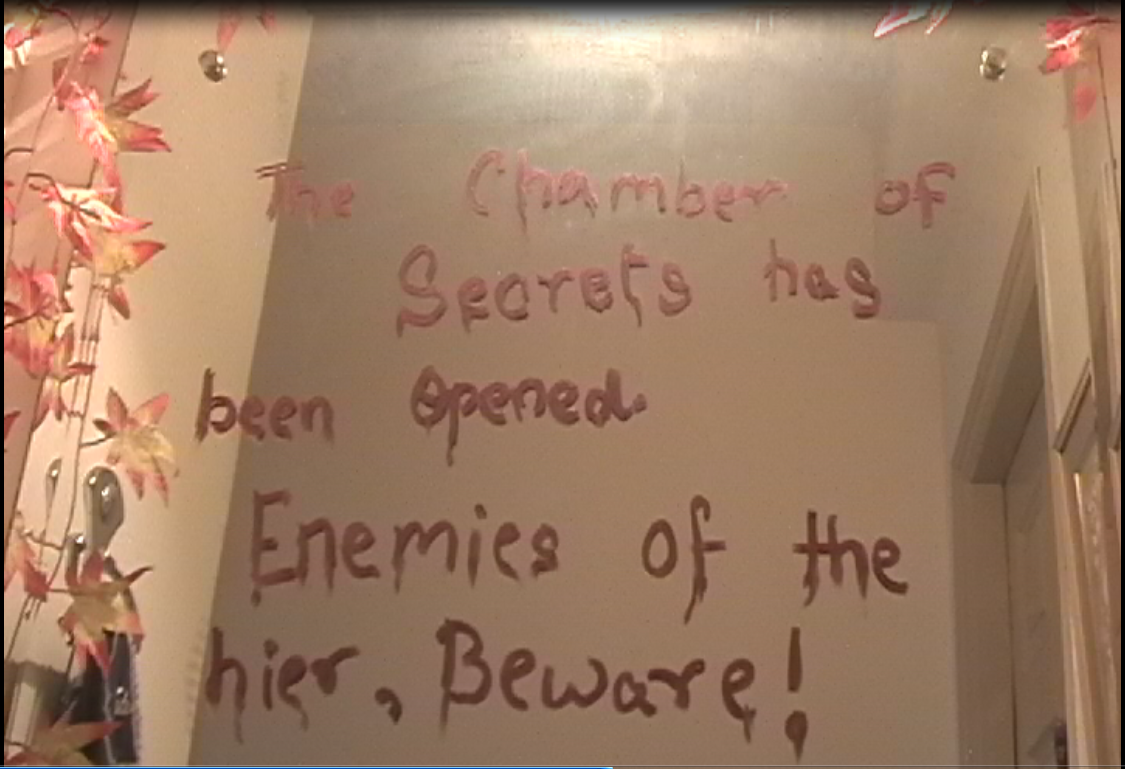 The Chamber of
Secrets has
been Opened.
Enemies of the
hier, Beware!